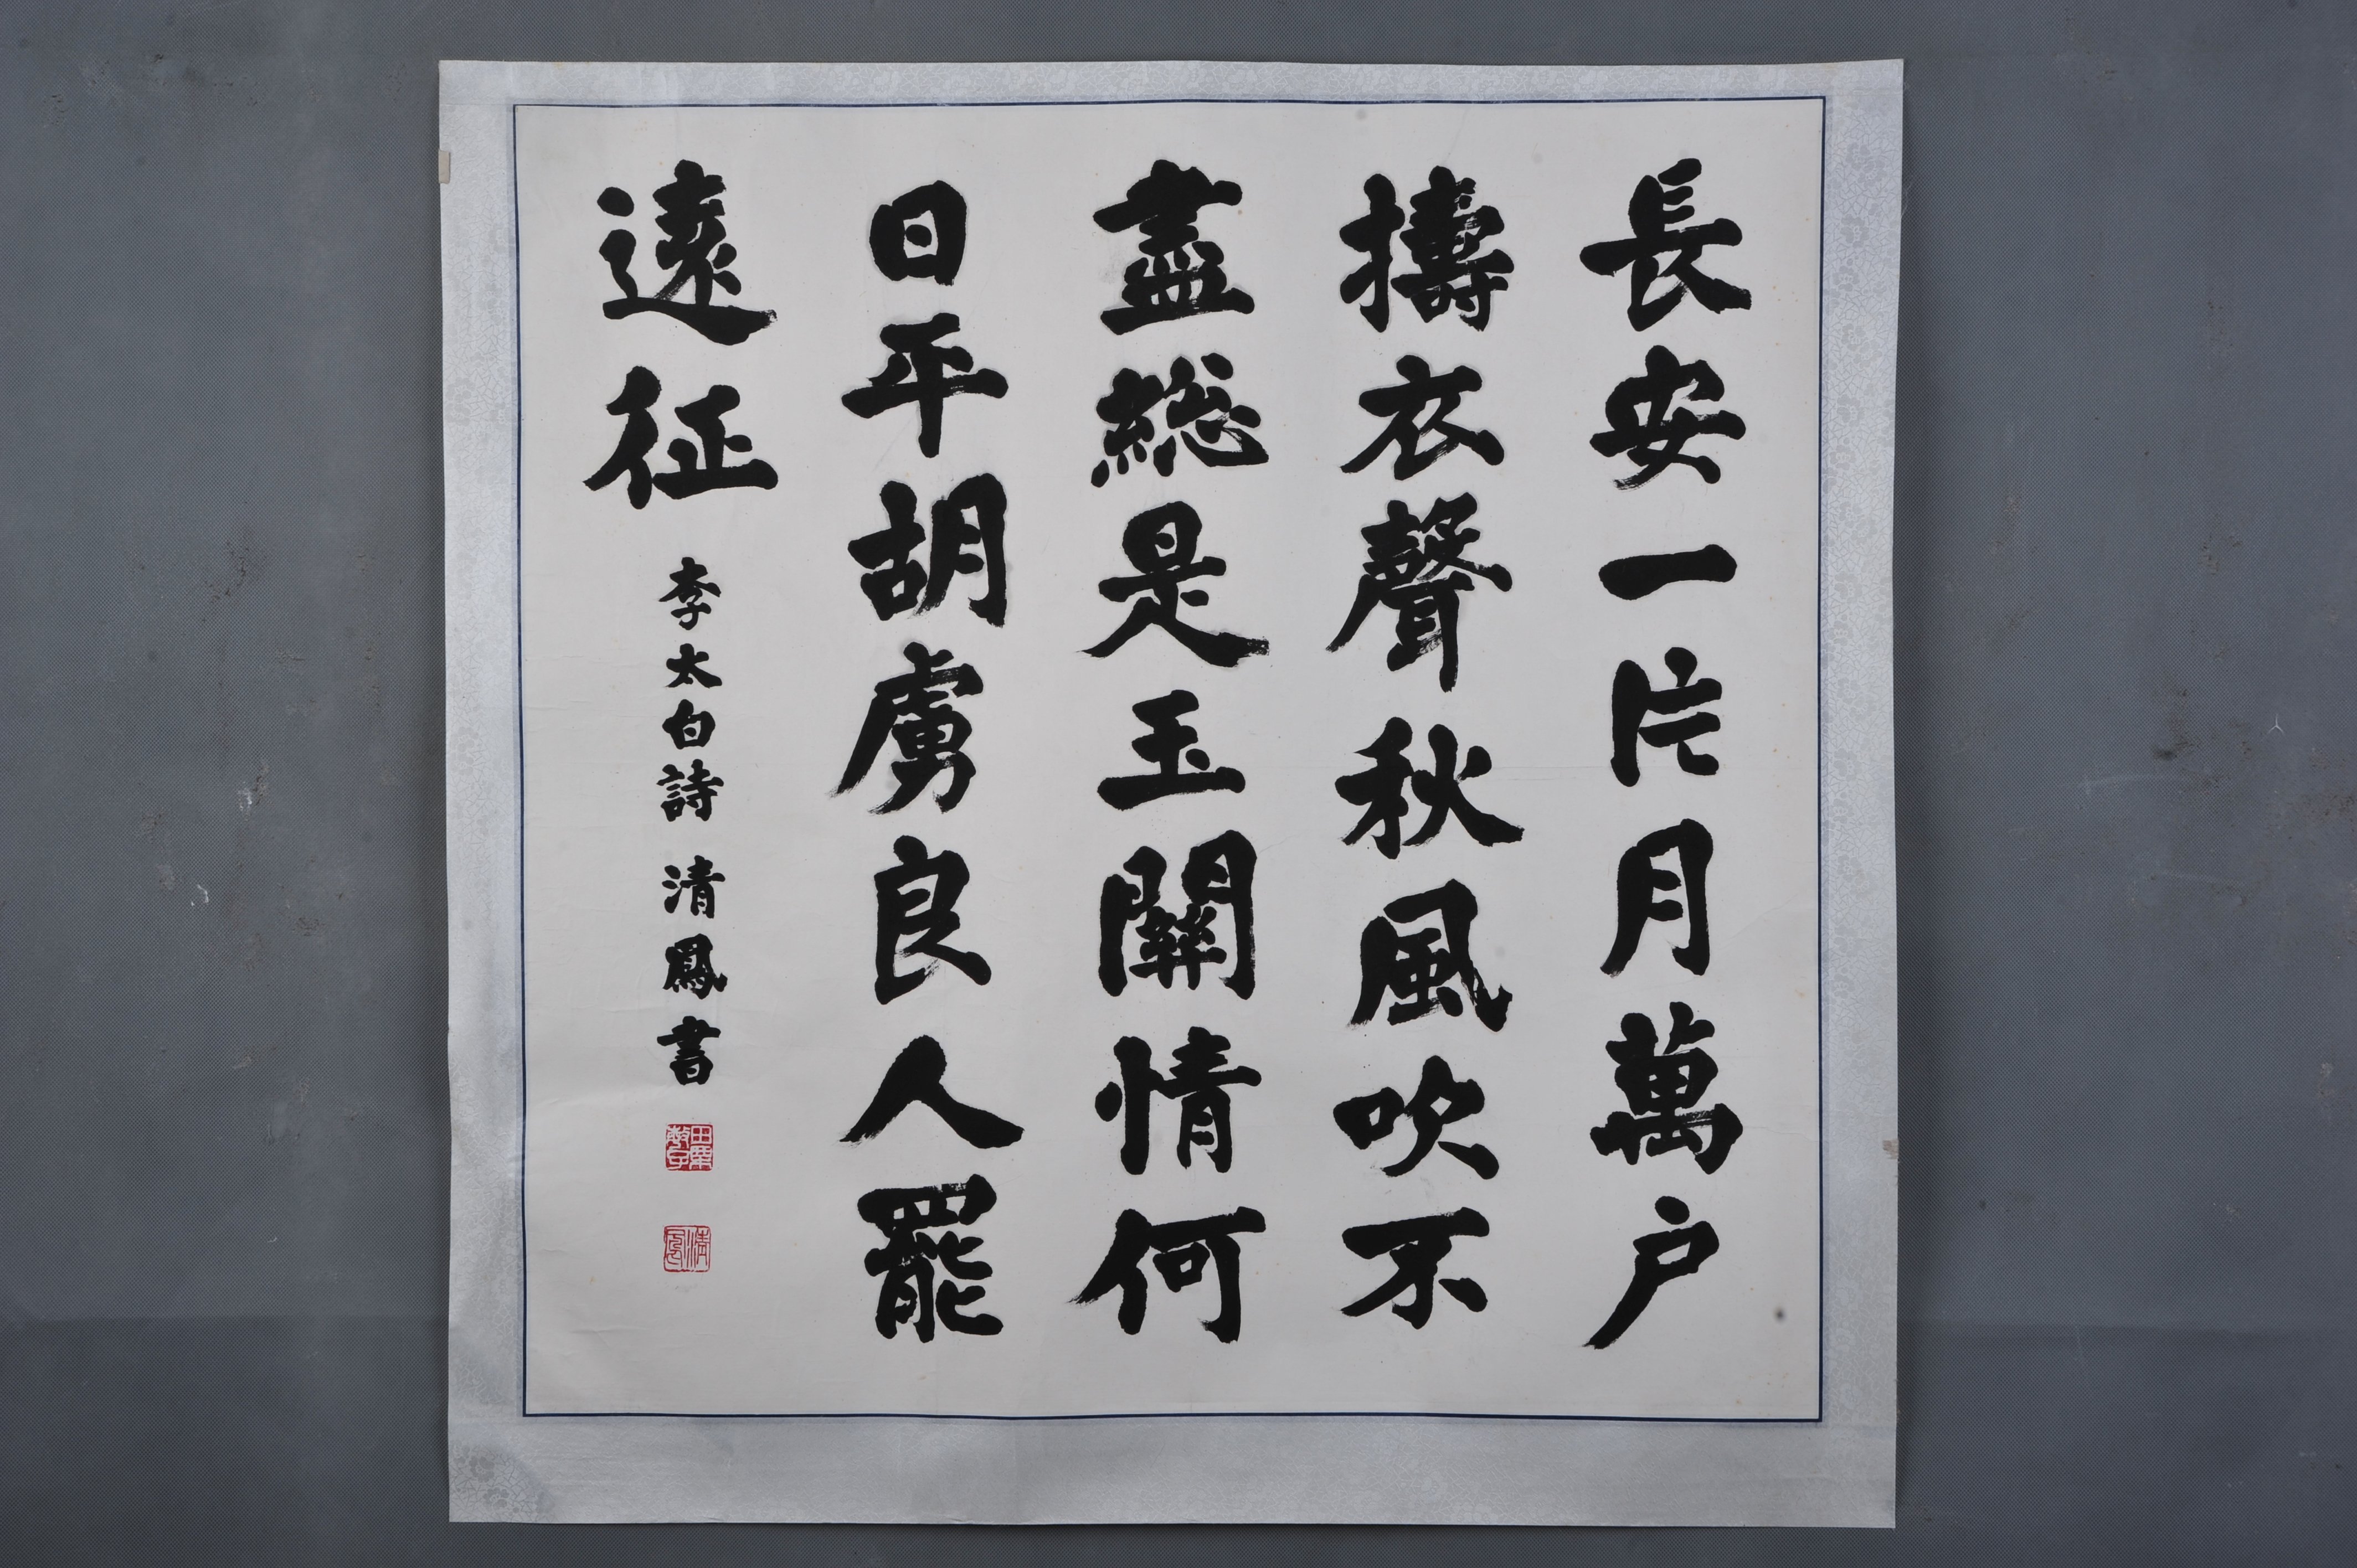 長安一片月萬户
擣衣聲秋風吹不
盡総是玉關情何
日平胡虜良人罷
遠征
李太白詩 清鳳書
清鳳